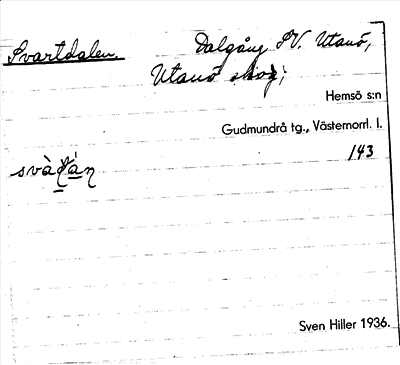 Svartdalen. Dalgång SV. Utanö,
Utanö skog;
Hemsö s:n
Gudmundrå tg., Västernorrl. l.
143
Sven Hiller 1936.